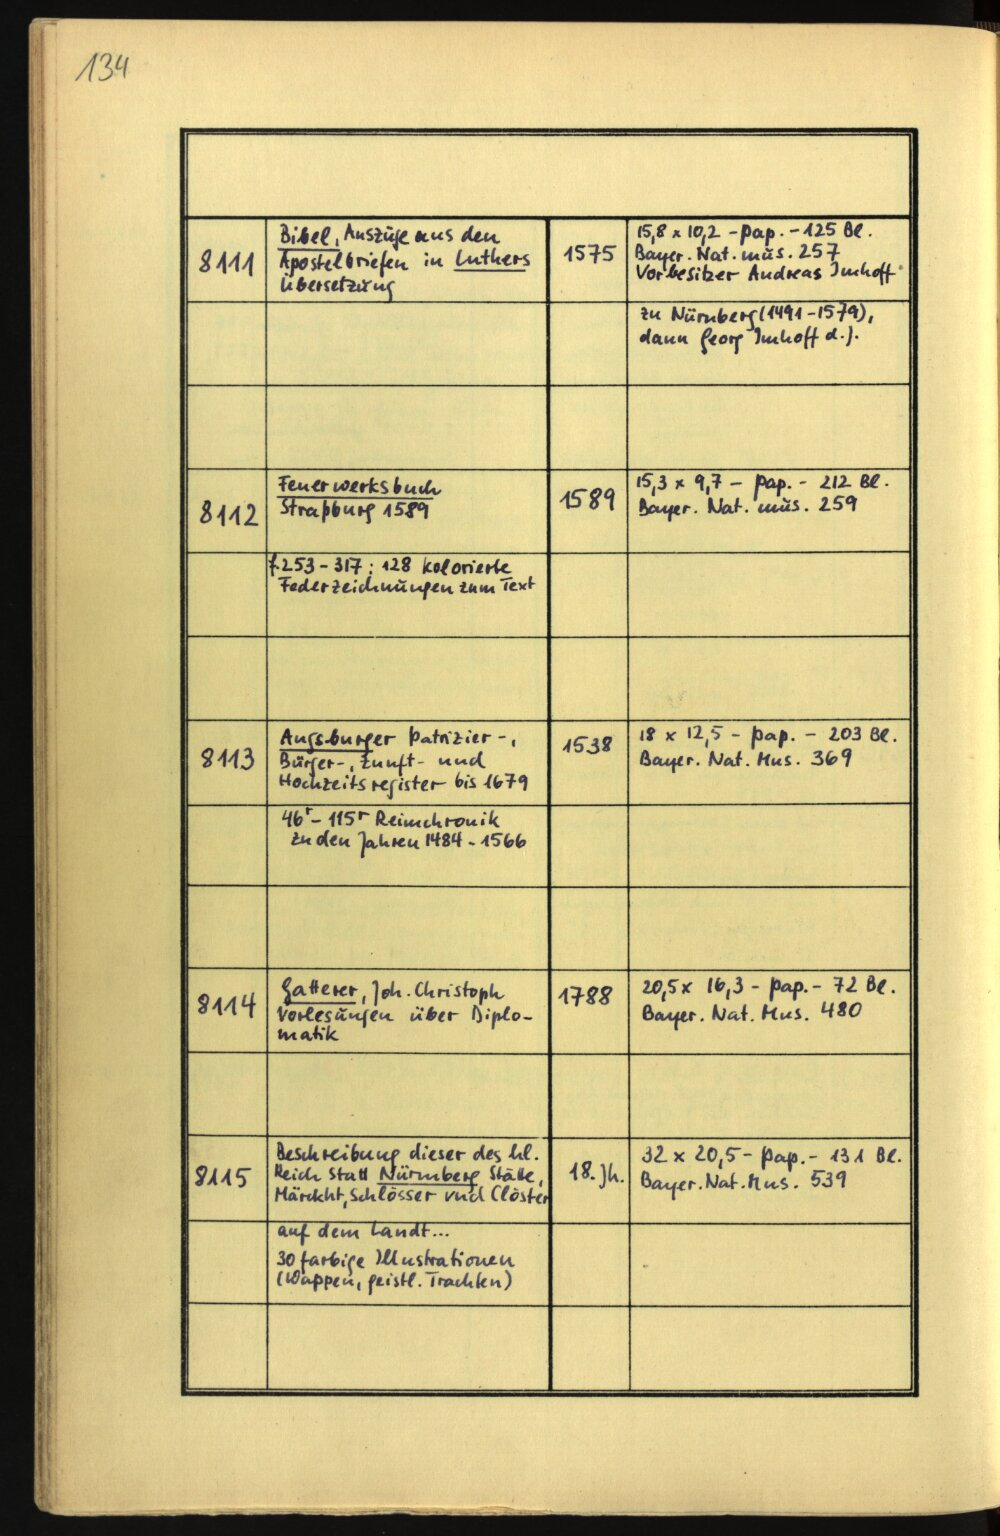 134
8111
Bibel, Auszüge aus den
Apostelbriefen in Luthers
Übersetzung
1575
15,8 x 10,2 - Pap. - 125 Bl.
Bayer. Nat. mus. 257
Vorbesitzer Andreas Imhoff
zu Nürnberg (1491-1579),
dann Georg Imhoff d. J.
8112
Feuerwerksbuch
Straßburg 1589
1589
15,3 x 9,7 - Pap. - 212 Bl.
Bayer. Nat. mus. 259
f. 253-317: 128 kolorierte
Federzeichnungen zum Text
8113
Augsburger Patrizier-,
Bürger-, Zunft- und
Hochzeitsregister bis 1679
1538
18 x 12,5 - Pap. - 203 Bl.
Bayer. Nat. Mus. 369
46r - 115r Reimchronik
zu den Jahren 1484-1566
8114
Gatterer, Joh. Christoph
Vorlesungen über Diplo-
matik
1788
20,5 x 16,3 - Pap. - 72 Bl.
Bayer. Nat. Mus. 480
8115
Beschreibung dieser des hl.
Reich Statt Nürmberg Stätte,
Märckht, Schlösser vnd Clöster
18. Jh.
32 x 20,5 - Pap. - 131 Bl.
Bayer. Nat. Mus. 539
auf dem Landt...
30 farbige Illustrationen
(Wappen, geistl. Trachten)